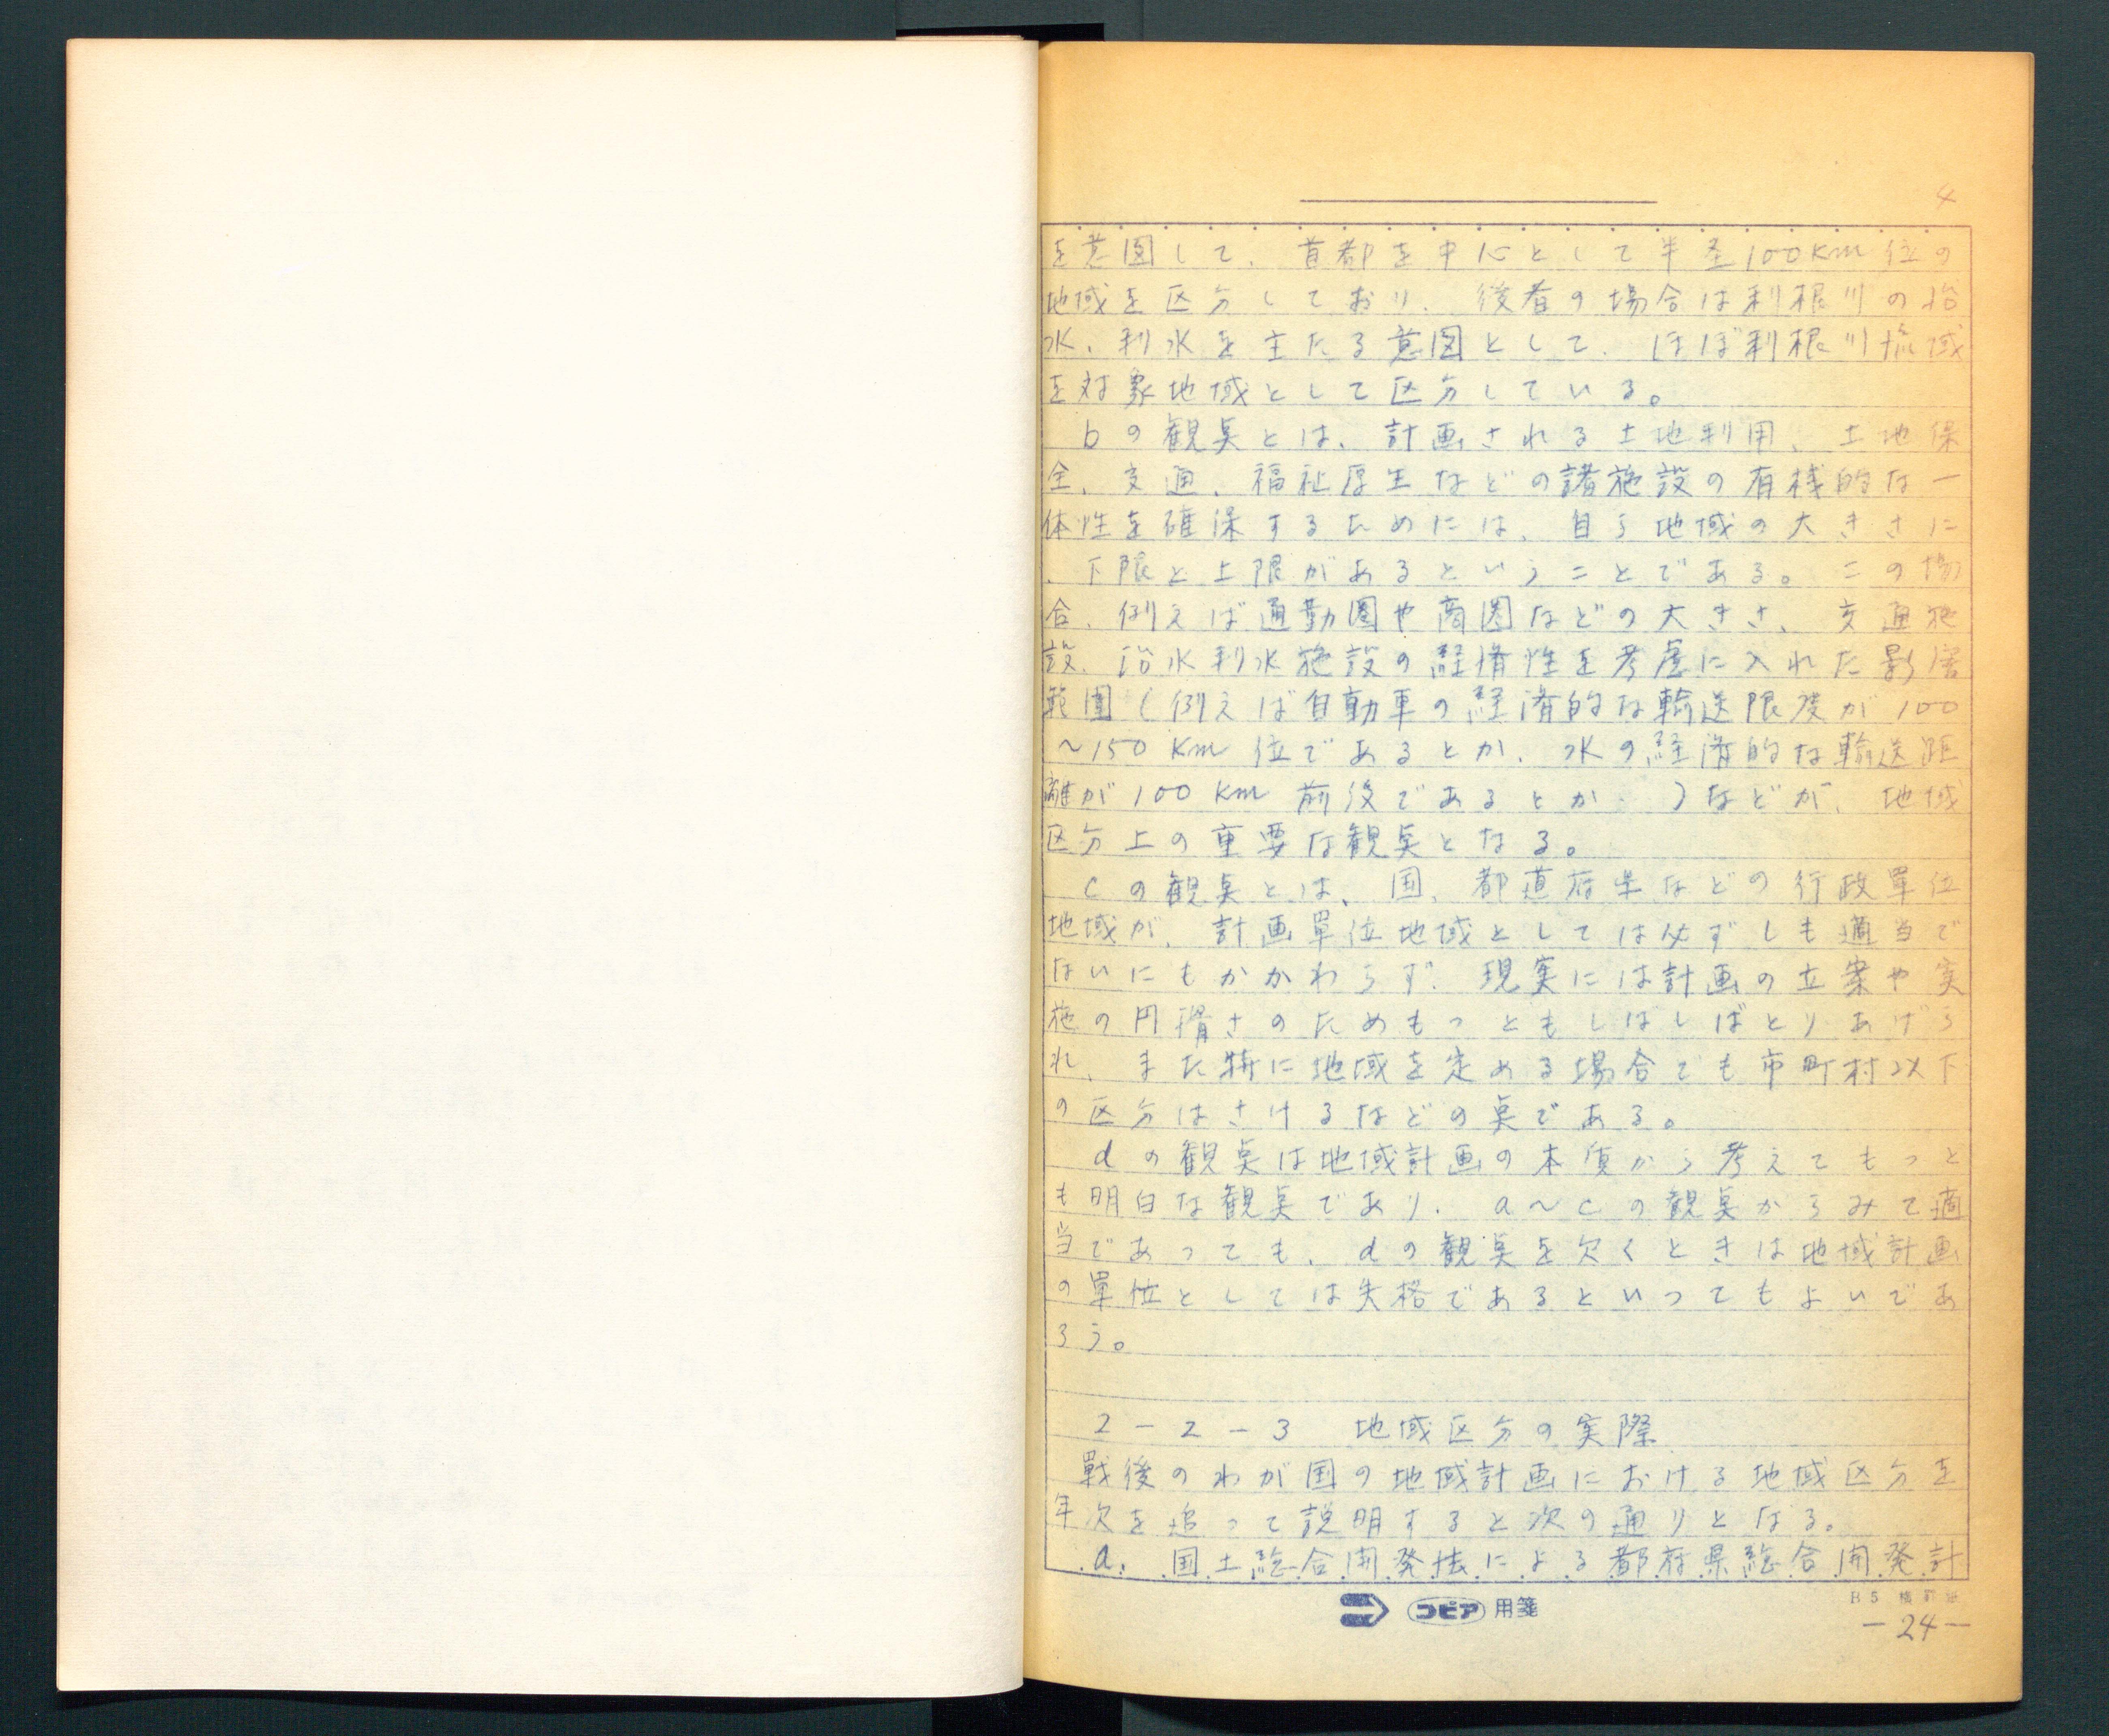 4
を意図して、首都を中心として半径100Km位の
地域を区分しており、後者の場合は利根川の治
水、利水を主たる意図として、ほぼ利根川流域
を対象地域として区分している。
bの観点とは、計画される土地利用、土地保
全、交通、福祉厚生などの諸施設の有機的な一
体性を確保するためには、自ら地域の大きさに
、下限と上限があるということである。この場
合、例えば通勤圏や商圏などの大きさ、交通施
設、治水利水施設の経済性を考慮に入れた影響
範囲(例えば自動車の経済的な輸送限度が100
～150Km位であるとか、水の経済的な輸送距
離が100Km前後であるとか、)などが、地域
区分上の重要な観点となる。
cの観点とは、国、都道府県などの行政單位
地域が、計画單位地域としては必ずしも適当で
ないにもかかわらず、現実には計画の立案や実
施の円滑さのためもっともしばしばとりあげら
れ、また特に地域を定める場合でも市町村以下
の区分はさけるなどの点である。
dの観点は地域計画の本質から考えてもっと
も明白な観点であり、a～cの観点からみて適
当であっても、dの観点を欠くときは地域計画
の單位としては失格であるといってもよいであ
ろう。
2-2-3 地域区分の実際
戰後のわが国の地域計画における地域区分を
年次を追って説明すると次の通りとなる。
a. 国土総合開発法による都府県総合開発計
コピア 用箋
B5 横罫紙
-24-